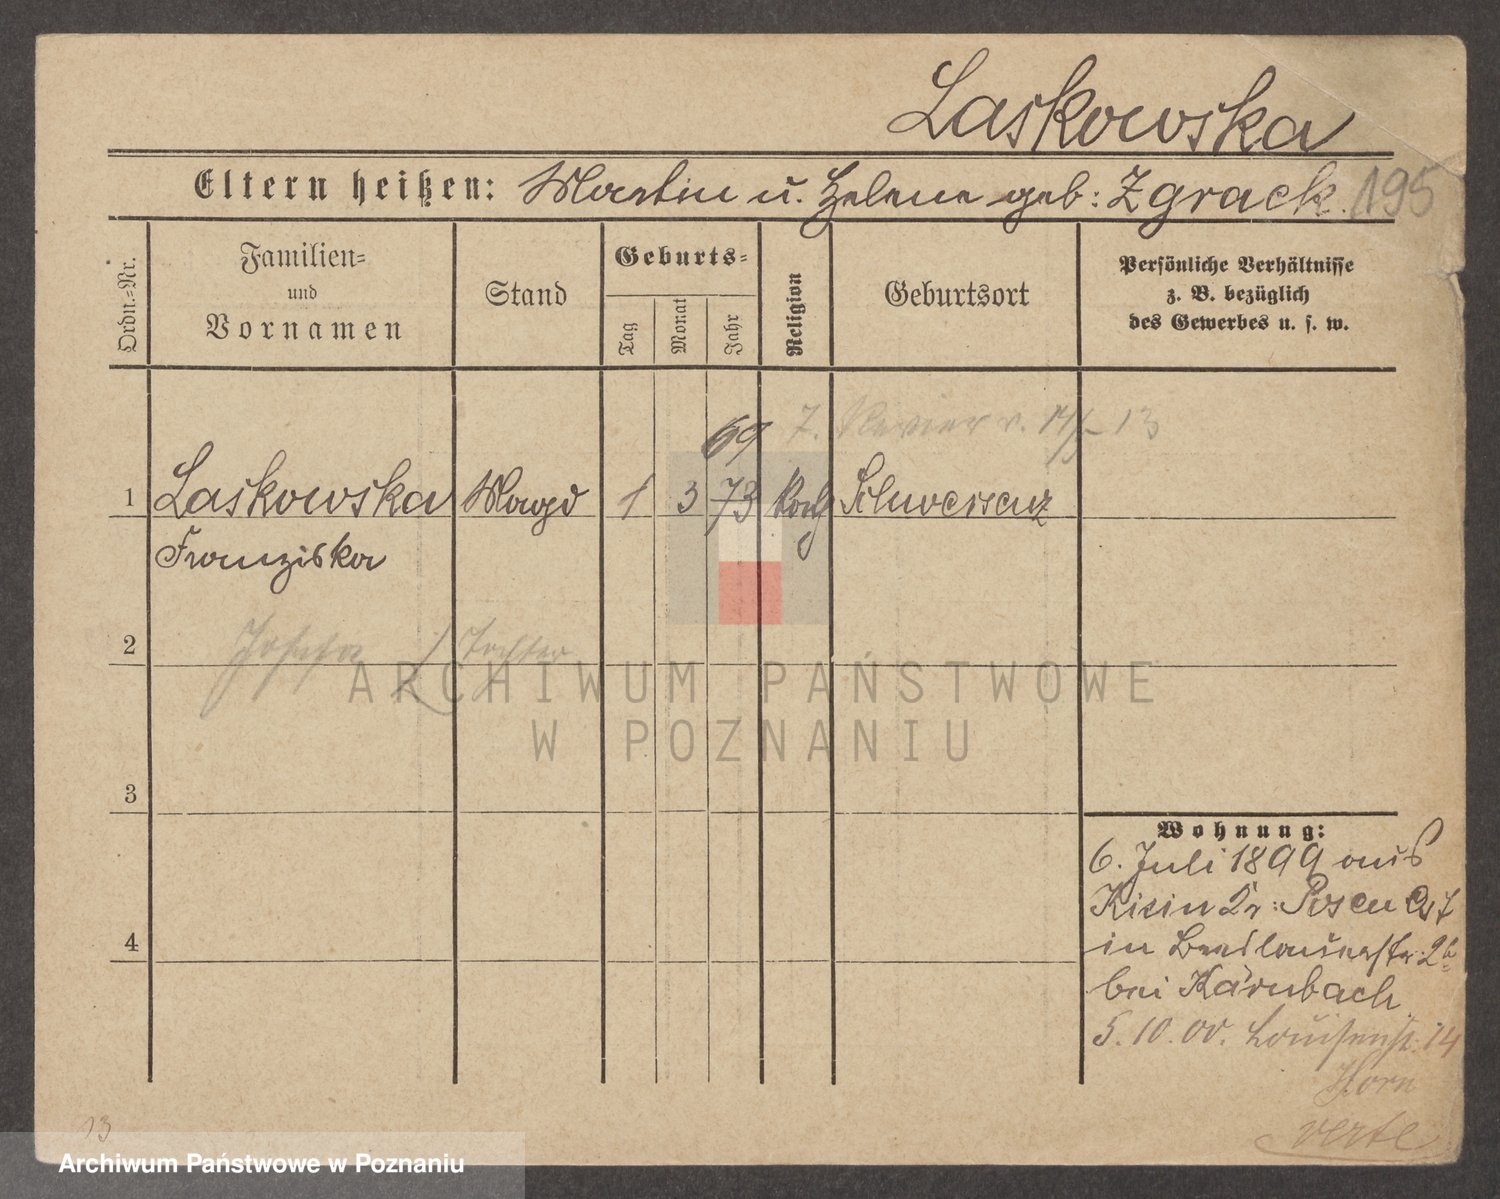 Laskowska
Eltern heißen: Martin u. Helene geb: Zgrack. 195
Ordn.=Nr.
Familien=
und
Vornamen
Stand
Geburts=
Tag
Monat
Jahr
Religion
Geburtsort
Persönliche Verhältnisse
z. B. bezüglich
des Gewerbes u. s. w.
7. Revier v. 13
69
1 Laskowska Magd 1 3 73 kath Schwersenz
Franziska
2 Josefa Tochter
3
4
Wohnung:
6. Juli 1899 aus
Kicin Kr: Posen Ost
in Breslauerstr. 2
bei Kärnbach
5.10.00. Louisenst. 14
Horn
verte
13
ARCHIWUM PAŃSTWOWE
W POZNANIU
Archiwum Państwowe w Poznaniu